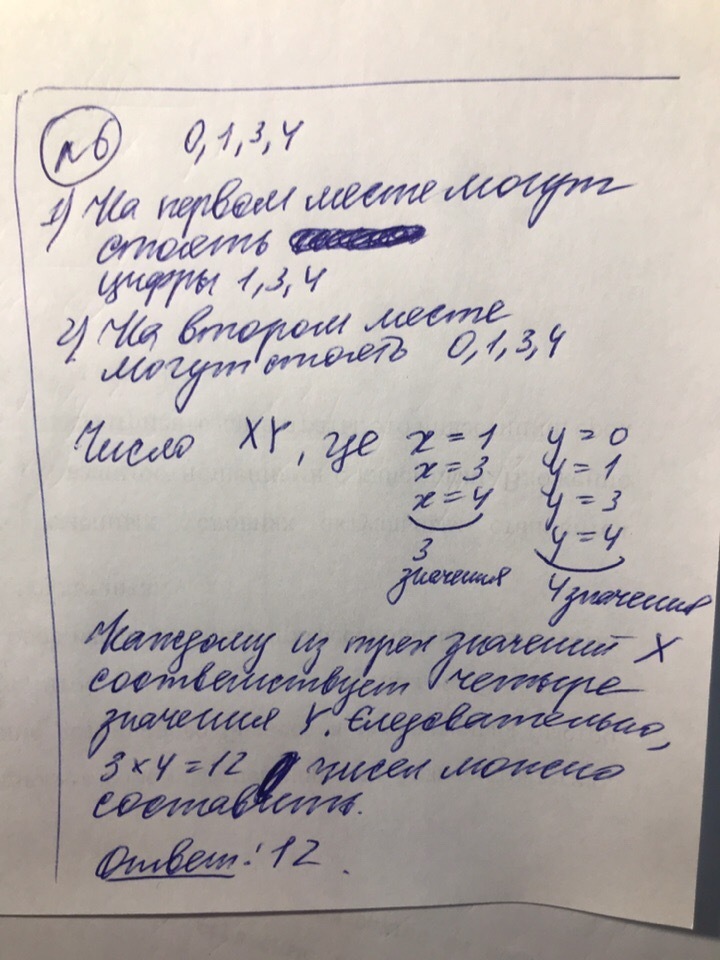 №6 0,1,3,4
1) На первом месте могут
стоять
цифры 1,3,4
2) На втором месте
могут стоять 0,1,3,4
Число XY, где x = 1 y = 0
x = 3 y = 1
x = 4 y = 3
y = 4
3
значения 4 значения
Каждому из трех значений X
соответствует четыре
значения Y. Следовательно,
3 × 4 = 12 чисел можно
составить.
Ответ: 12.